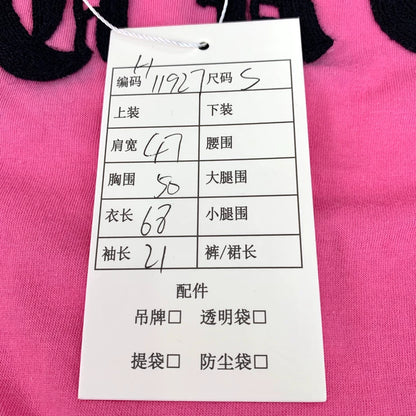 编码 H11927 尺码 S
上装 下装
肩宽 47 腰围
胸围 50 大腿围
衣长 68 小腿围
袖长 21 裤/裙长
配件
吊牌□ 透明袋□
提袋□ 防尘袋□